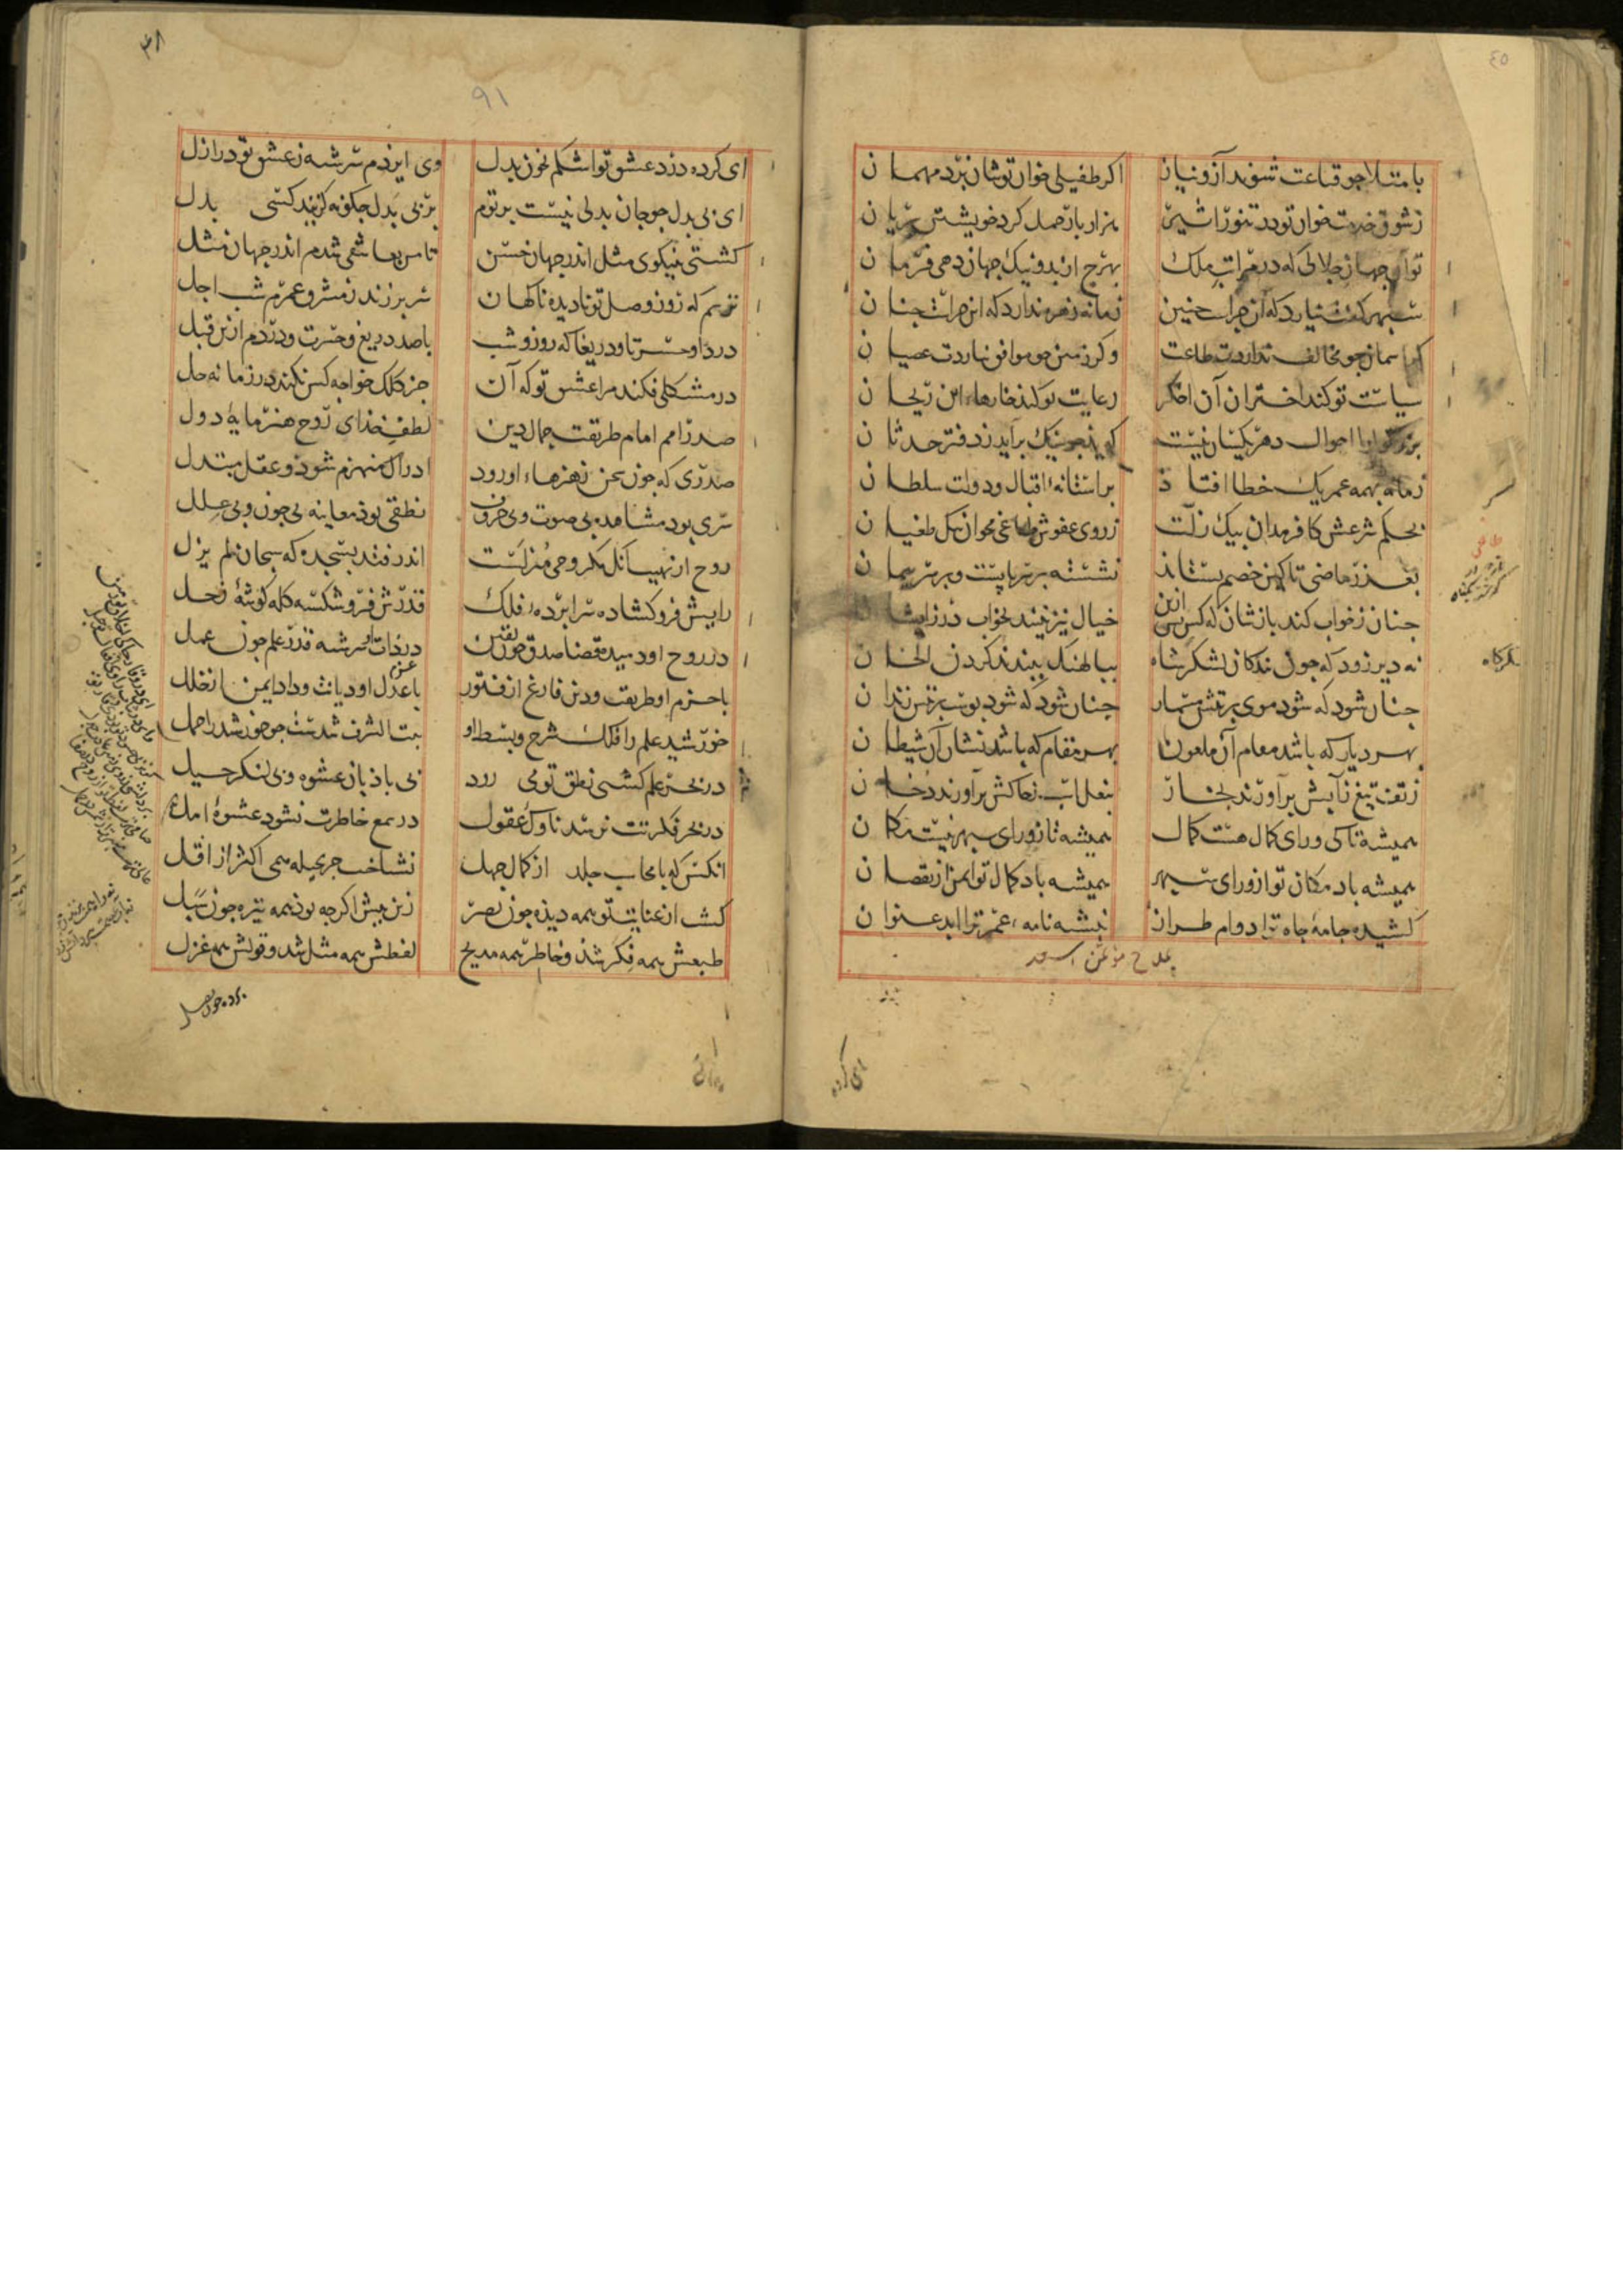 ٤٥
با متلا جو قناعت شوند آز و نیاز اکر طفیلی خوان تو شان برد مهمان
ز شوق خدمت خوان تو در تنور اثیر هزار بار حمل کرد خویشتن بریان
توان جهان جلالی که در مراتب ملک بهرج از بد و نیک جهان دهی فرمان
سبهر کفت نیارد که آن جراست جنین زمانه زهره ندارد که این جراست جنان
کر آسمان جو مخالف نداردت طاعت وکر زمین جو موافق نیاردت عصیان
سیاست تو کند اختران آن اخکر رعایت تو کند خارهاء این ریحان
بزرکوارا احوال دهر یکسان نیست که بد جو نیک برآید ز دفتر حدثان
زمانه را بهمه عمر یک خطا افتاد بر آستانهء اقبال و دولت سلطان
بحکم شرعش کافر مدان بیک زلت ز روی عفوش طاغی مخوان بیک طغیان
بعذر ماضی تا کین خصم بستاند نشسته بر سر پایست و بر سر پیمان
جنان ز خواب کند بازشان که کس بس ازین خیال نیز نبیند بخواب در ز ایشان
نه دیر زود که جون بندکان لشکرشاه ببالهنک ببندند کردن الخان
جنان شود که شود موی بر تنش مسمار جنان شود که شود بوست بر تنش زندان
بهر دیار که باشد مقام آن ملعون بهر مقام که باشد نشان آن شیطان
ز تف تیغ ز آبش برآورند بخار بنعل اسب ز خاکش برآورند دخان
همیشه تا کی ورای کمال هست کمال همیشه تا ز ورای سبهر نیست مکان
همیشه باد مکان تو از ورای سبهر همیشه باد کمال تو ایمن از نقصان
کشیده جامهٔ جاه ترا دوام طراز نبشته نامهء عمر ترا ابد عنوان
لشکرکاه
ای کرده
٩١
ای کرده درد عشق تو اشکم بخون بدل وی ایزدم سرشته ز عشق تو در ازل
ای بی بدل جو جان بدلی نیست بر توم بر بی بدل جکونه کزیند کسی بدل
کشتی بنیکوی مثل اندر جهان حسن تا من بعاشقی شدم اندر جهان مثل
ترسم که روز وصل تو نادیده ناکهان سر برزند ز مشرق عمرم شب اجل
دردا و حسرتا و دریغا که روز و شب با صد دریغ و حسرت و دردم ازین قبل
در مشکلی فکند مرا عشق تو که آن جز کلک خواجه کس نکند در زمانه حل
صدر امم امام طریقت جمال دین لطف خدای روح هنر مایهٔ دول
صدری که جون سخن ز هنرهاء او رود ادراک منهزم شود و عقل مبتذل
سری بود مشاهده بی صوت و بی حروف نطقی بود معاینه بی جون و بی علل
روح از نهیب آنک مکر وحی منزلست اندر فتد بسجده که سبحان لم یزل
رایش فرو کشاده سرابردهء فلک قدرش فرو شکسته کله کوشهٔ زحل
در روح او دمیده قضا صدق جون یقین در ذات او سرشته قدر علم جون عمل
با حزم او طریقت و دین فارغ از فتور با عدل او دیانت و داد ایمن از خلل
خورشید علم را فلک شرح و بسط او بیت الشرف شدست جو خورشید را حمل
در بحر علم کشتی نطق تو می رود بی بادبان عشوه و بی لنکر حیل
در بحر فکرتت نرسد ناوک عقول در سمع خاطرت نشود عشوهٔ امل
انکس که با محاب جلد از کمال جهل نشناخت جر بحیله همی اکثر از اقل
کشت از عنایت تو همه دیده جون بصر زین بیش اکرجه بود همه تیره جون سبل
طبعش همه فکر شد و خاطر همه مدیح لفظش همه مثل شد و قولش همه غزل